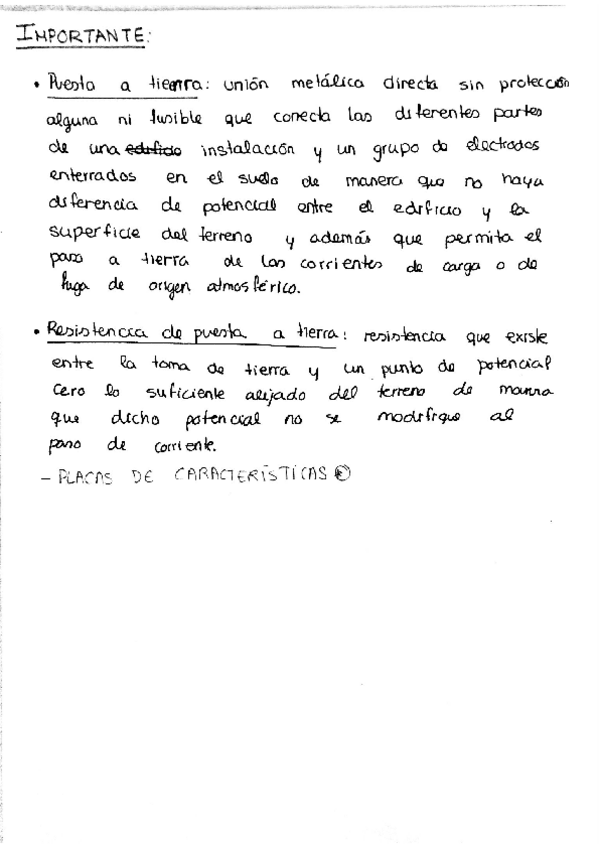 IMPORTANTE:
• Puesta a tierra: unión metálica directa sin protección
alguna ni fusible que conecta las diferentes partes
de una edificio instalación y un grupo de electrodos
enterrados en el suelo de manera que no haya
diferencia de potencial entre el edificio y la
superficie del terreno y además que permita el
paso a tierra de las corrientes de carga o de
fuga de origen atmosférico.
• Resistencia de puesta a tierra: resistencia que existe
entre la toma de tierra y un punto de potencial
cero lo suficiente alejado del terreno de manera
que dicho potencial no se modifique al
paso de corriente.
- PLACAS DE CARACTERÍSTICAS